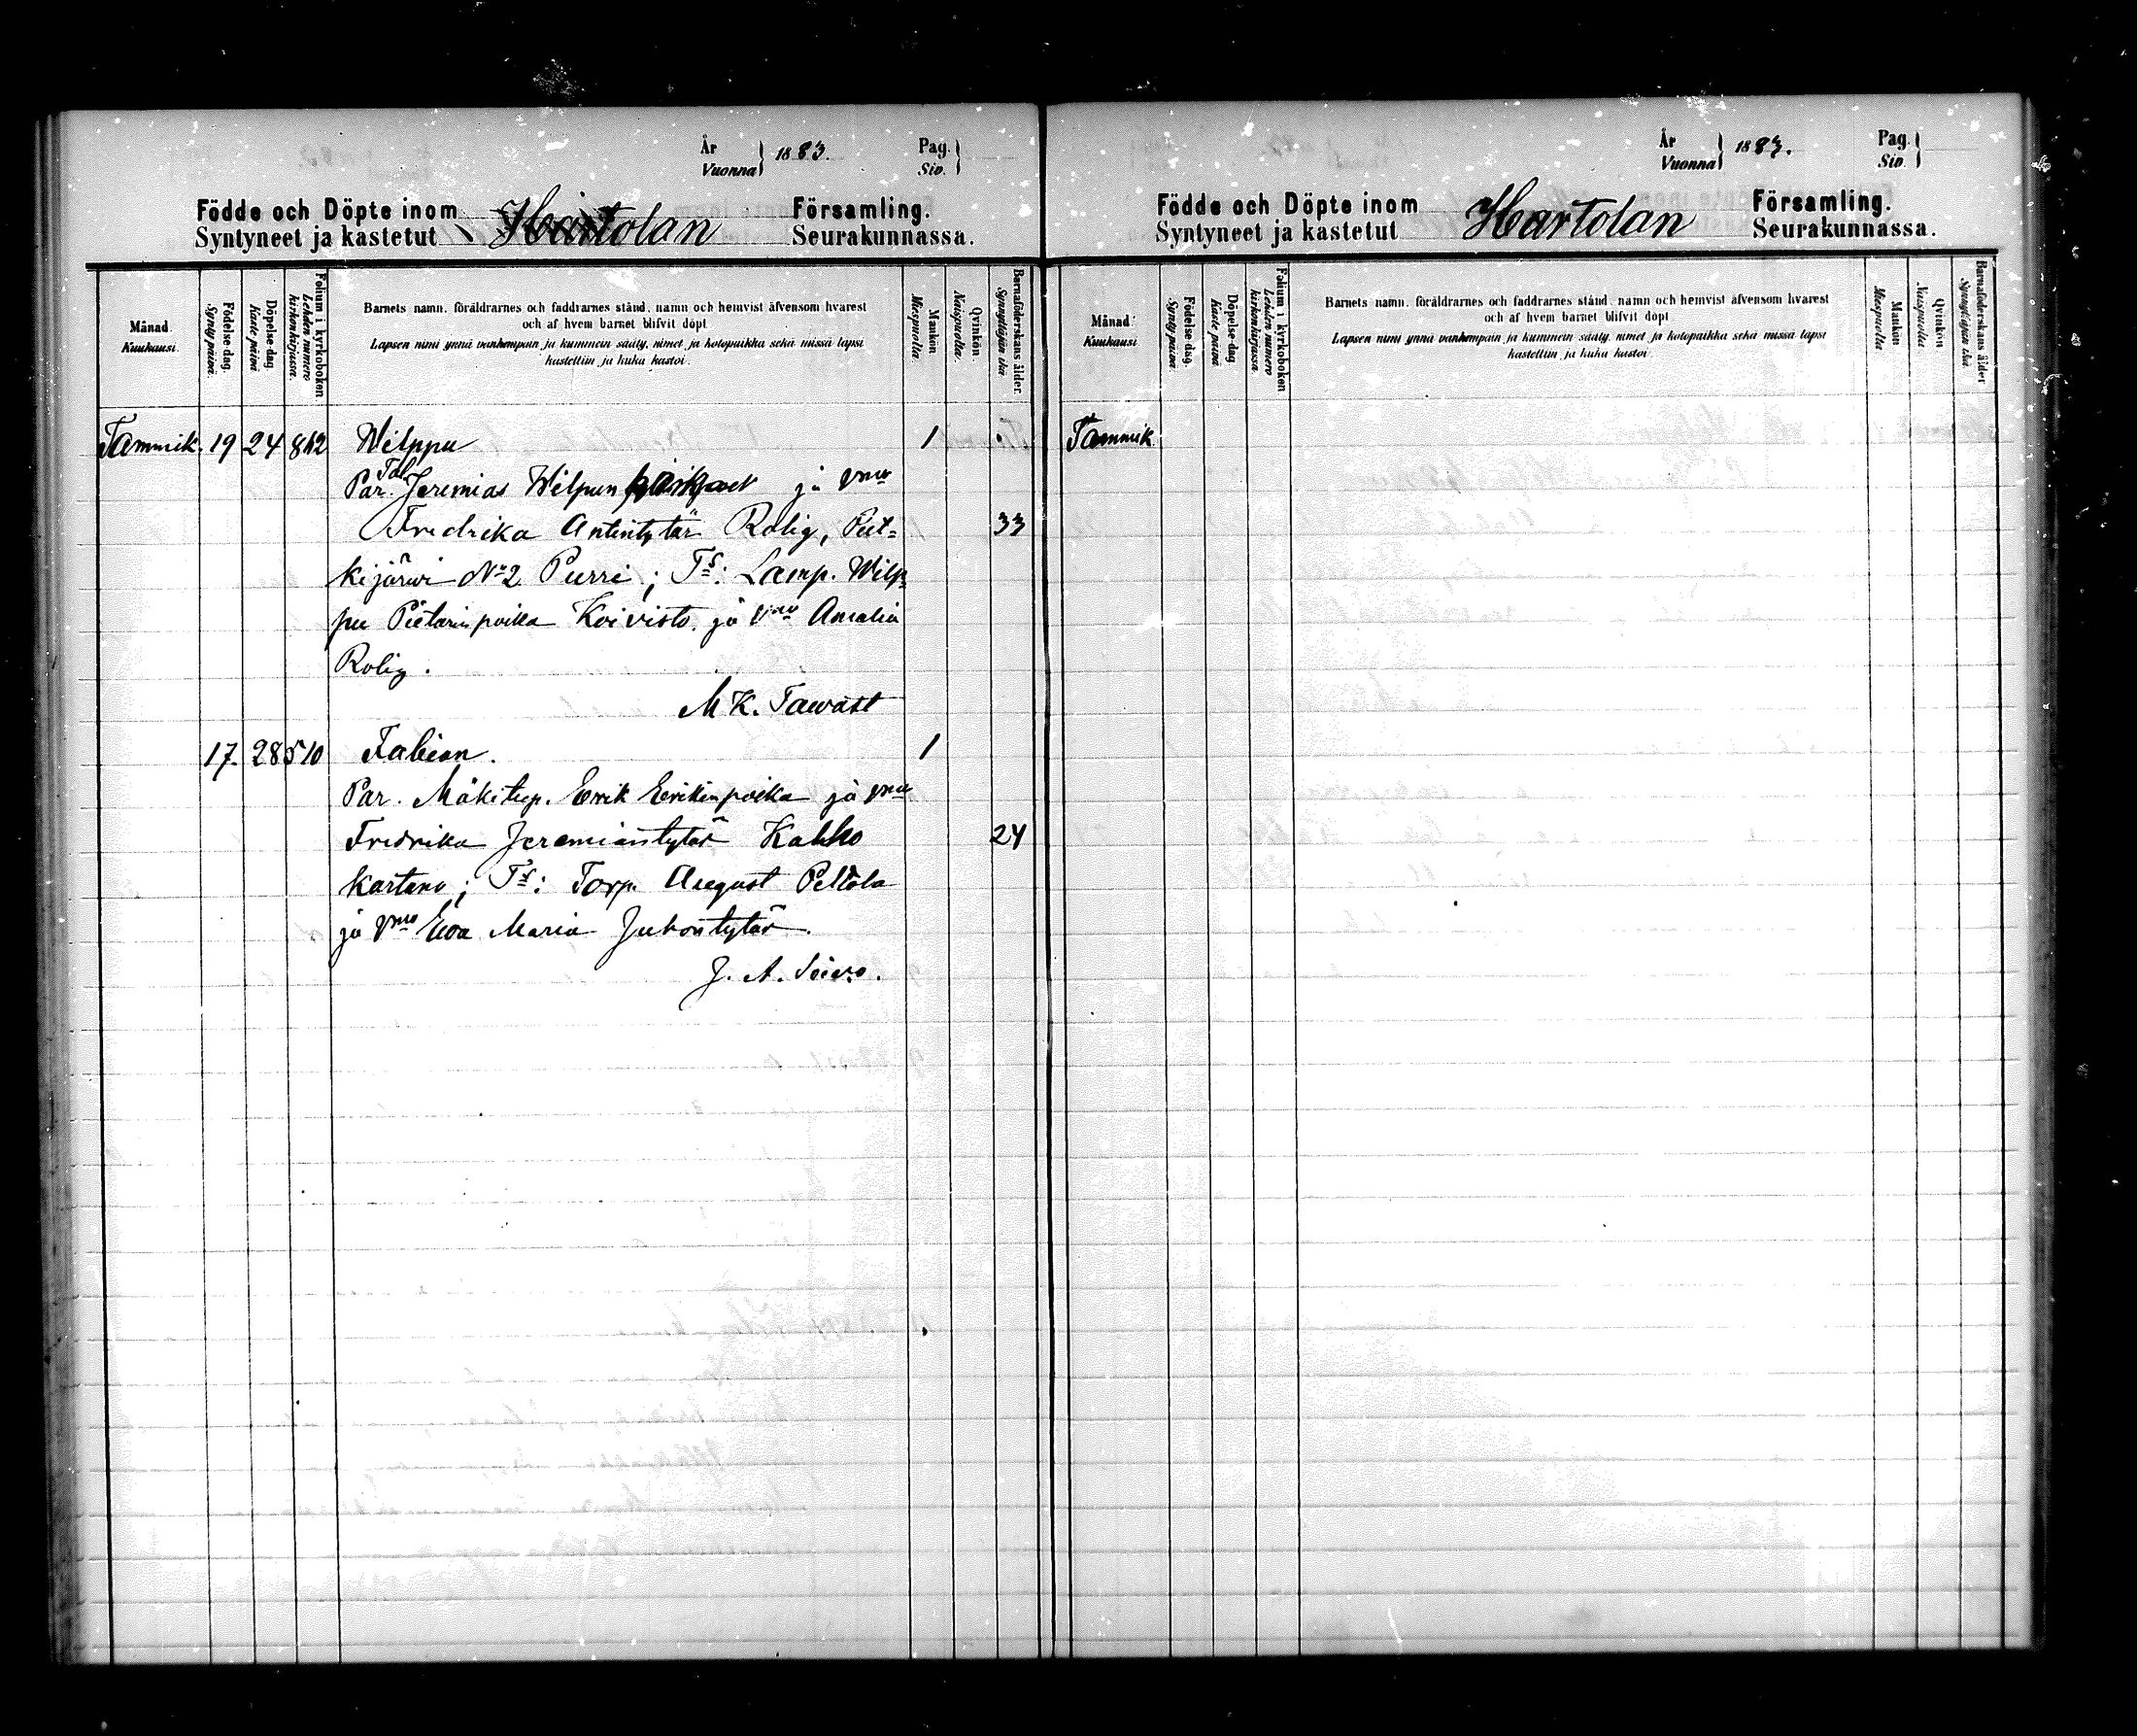 År
Vuonna } 1883. Pag.
Siv. }
Födde och Döpte inom
Syntyneet ja kastetut Hartolan Församling.
Seurakunnassa.
Månad.
Kuukausi.
Födelse-dag.
Syntypäivä.
Döpelse-dag
Kaste päivä
Folium i kyrkoboken
Lehden numero
kirkonkirjassa.
Barnets namn, föräldrarnes och faddrarnes stånd, namn och hemvist äfvensom hvarest
och af hvem barnet blifvit döpt.
Lapsen nimi ynnä vanhempain ja kummein sääty, nimet ja kotopaikka sekä missä lapsi
kastettiin ja kuka kastoi.
Mankön
Miespuolia
Qvinkön.
Naispuolia.
Barnaföderskans ålder.
Synnyttäjän ikä
Tammik. 19 24 812 Wilppu 1
Par. Tal. Jeremias Wilpun ja vmo
Fredrika Antintytär Rolig, Put= 33
kijärwi No 2 Purri; Ts: Lamp. Wilp=
pu Pietarinpoika Koivisto ja vmo Amalia
Rolig.
M K. Tawast
17. 28 510 Fabian. 1
Par. Mäkitup. Erik Erikinpoika ja vmo
Fredrika Jeremiäntytär Kahko 24
kartano; Ts: Torp. August Peltola
ja vmo Ewa Maria Juhontytär.
J. A.
År
Vuonna } 1883. Pag.
Siv. }
Födde och Döpte inom
Syntyneet ja kastetut Hartolan Församling.
Seurakunnassa.
Månad
Kuukausi
Födelse-dag.
Syntypäivä.
Döpelse-dag
Kaste päivä
Folium i kyrkoboken
Lehden numero
kirkonkirjassa.
Barnets namn, föräldrarnes och faddrarnes stånd, namn och hemvist äfvensom hvarest
och af hvem barnet blifvit döpt.
Lapsen nimi ynnä vanhempain ja kummein sääty, nimet ja kotopaikka sekä missä lapsi
kastettiin ja kuka kastoi.
Mankön
Miespuolia
Qvinkön
Naispuolia
Barnaföderskans ålder
Synnyttäjän ikä.
Tammik